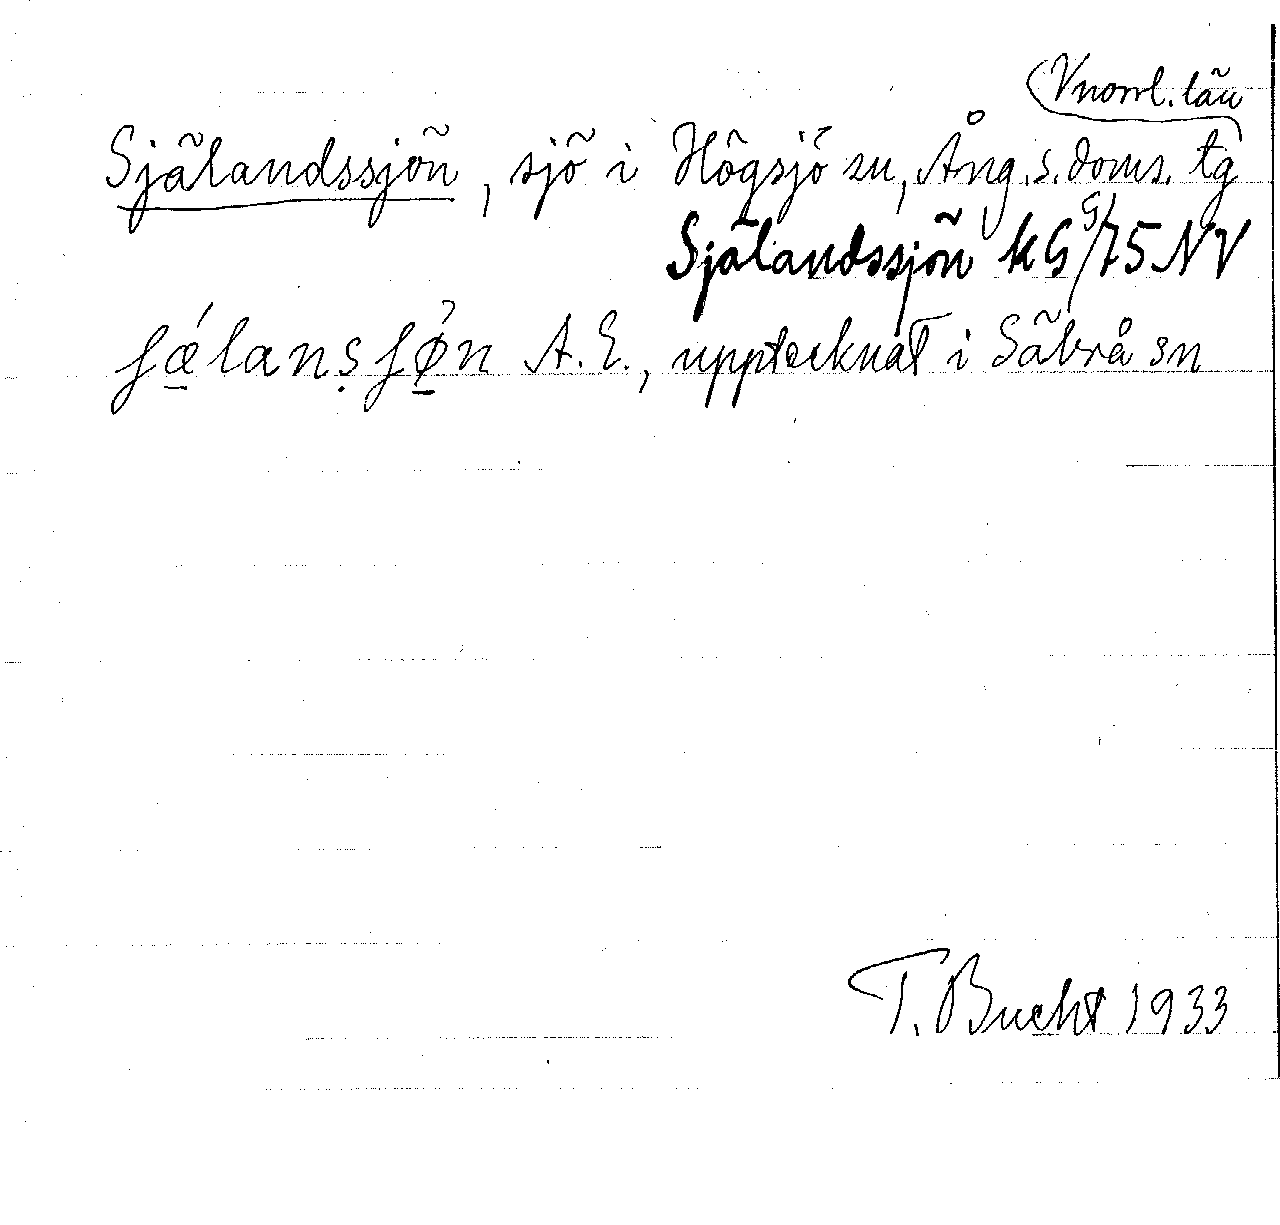 Vnorrl. län
Själandssjön, sjö i Högsjö sn, Ång. s. doms. tg
Själandssjön kG 9/75 NV
ʃǽlansʃø̀n A. E., upptecknat i Säbrå sn
T. Bucht 1933